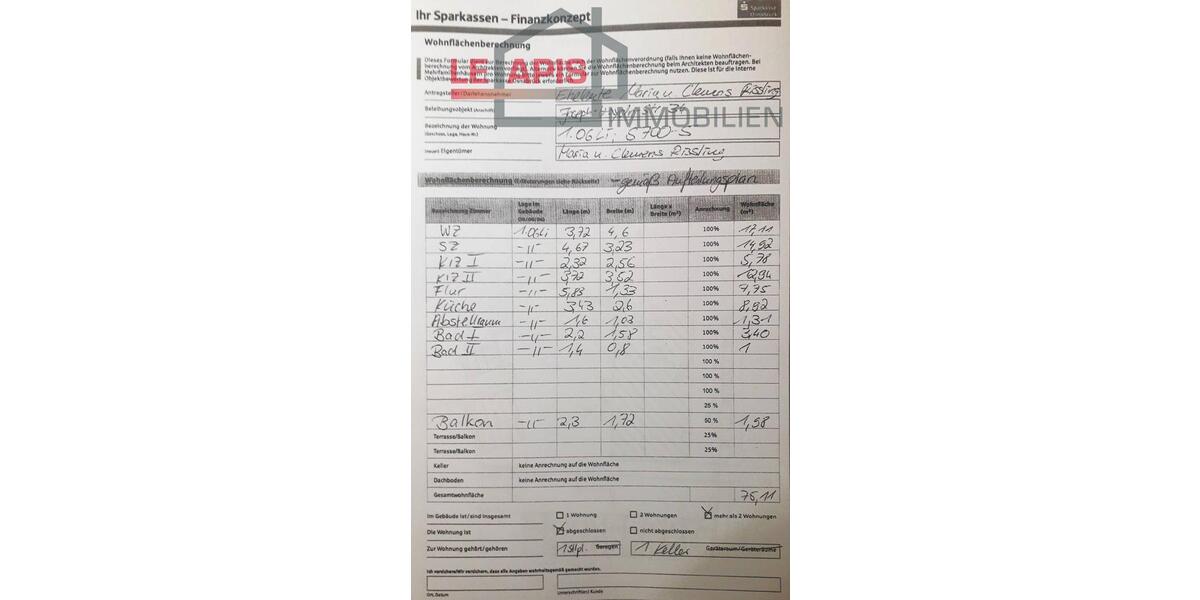 Ihr Sparkassen – Finanzkonzept
Sparkasse
Osnabrück
Wohnflächenberechnung
LE APIS
IMMOBILIEN
Antragsteller/Darlehensnehmer Eheleute Maria u. Clemens Rissling
Beleihungsobjekt (Anschrift) Joseph-Haydn-Str. 34
Bezeichnung der Wohnung
(Geschoss, Lage, Haus-Nr.) 1.OG LI, S 700-S
Eigentümer Maria u. Clemens Rissling
Wohnflächenberechnung (Erläuterungen siehe Rückseite) gemäß Aufteilungsplan
Bezeichnung Zimmer Lage im Gebäude Länge (m) Breite (m) Länge x Breite (m²) Anrechnung Wohnfläche (m²)
WZ 1.OG Li 3,72 4,6 100% 17,11
SZ -"- 4,67 3,23 100% 14,92
KIZ I -"- 2,32 2,56 100% 5,78
KIZ II -"- 3,72 3,52 100% 12,94
Flur -"- 5,83 1,33 100% 7,75
Küche -"- 3,43 2,6 100% 8,92
Abstellraum -"- 1,6 1,03 100% 1,31
Bad I -"- 2,2 1,58 100% 3,40
Bad II -"- 1,4 0,8 100% 1
100 %
100 %
100 %
25 %
Balkon -"- 2,3 1,72 50 % 1,98
Terrasse/Balkon 25%
Terrasse/Balkon 25%
Keller keine Anrechnung auf die Wohnfläche
Dachboden keine Anrechnung auf die Wohnfläche
Gesamtwohnfläche 75,11
Im Gebäude ist/sind insgesamt 1 Wohnung 2 Wohnungen mehr als 2 Wohnungen
Die Wohnung ist abgeschlossen nicht abgeschlossen
Zur Wohnung gehört/gehören 1 Stlpl. Garagen 1 Keller Geräteraum/Geräteräume
Ich versichere/Wir versichern, dass alle Angaben wahrheitsgemäß gemacht wurden.
Ort, Datum Unterschrift(en) Kunde